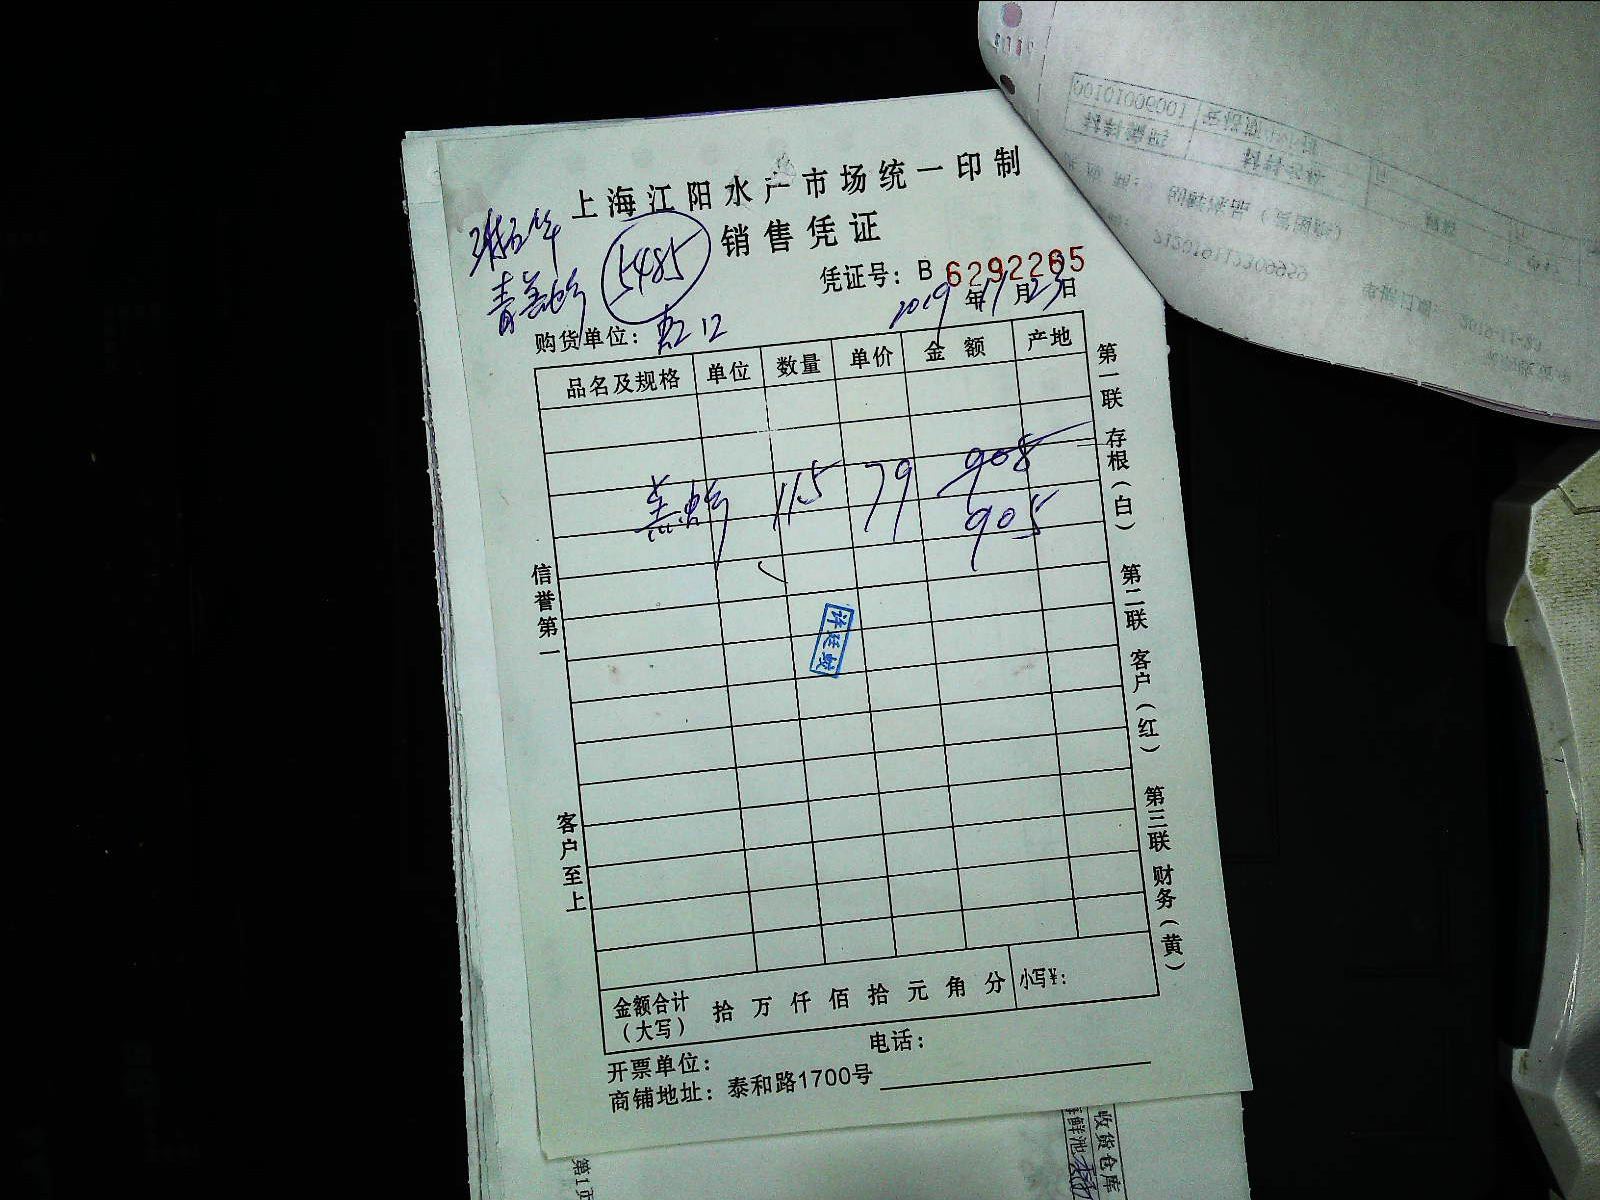 上海江阳水产市场统一印制
5485
销售凭证
凭证号：B 6292265
2019年11月23日
购货单位：
品名及规格 单位 数量 单价 金额 产地
115 79 908
905
许廷蛟
信誉第一
客户至上
第一联 存根（白）
第二联 客户（红）
第三联 财务（黄）
金额合计（大写） 拾 万 仟 佰 拾 元 角 分 小写¥：
开票单位： 电话：
商铺地址：泰和路1700号
收货仓库
第1页